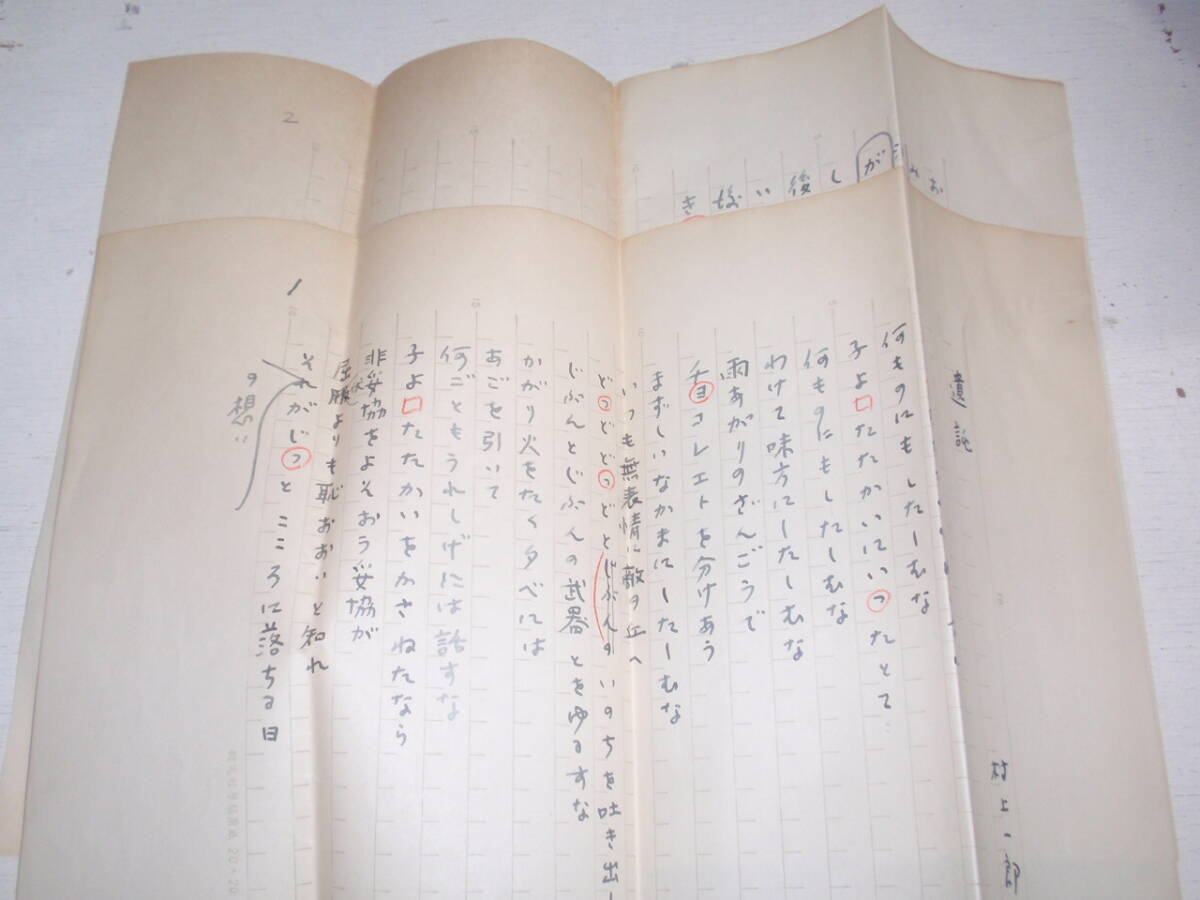 遺訓
村上一郎
何ものにもしたしむな
子よ□たたかいにいったとて
何ものにもしたしむな
わけて味方にしたしむな
雨あがりのざんごうで
チョコレエトを分けあう
まずしいなかまにしたしむな
いつも無表情に敵の丘へ
どっどどっどとじぶんのいのちを吐き出し
じぶんとじぶんの武器とをゆるすな
かがり火をたく夕べには
あごを引いて
何ごともうれしげには話すな
子よ□たたかいをかさねたなら
非妥協をよそおう妥協が
屈服よりも恥おおいと知れ
それがじっとこころに落ちる日
の想い
1
2
が
し
後
い
き
20×20